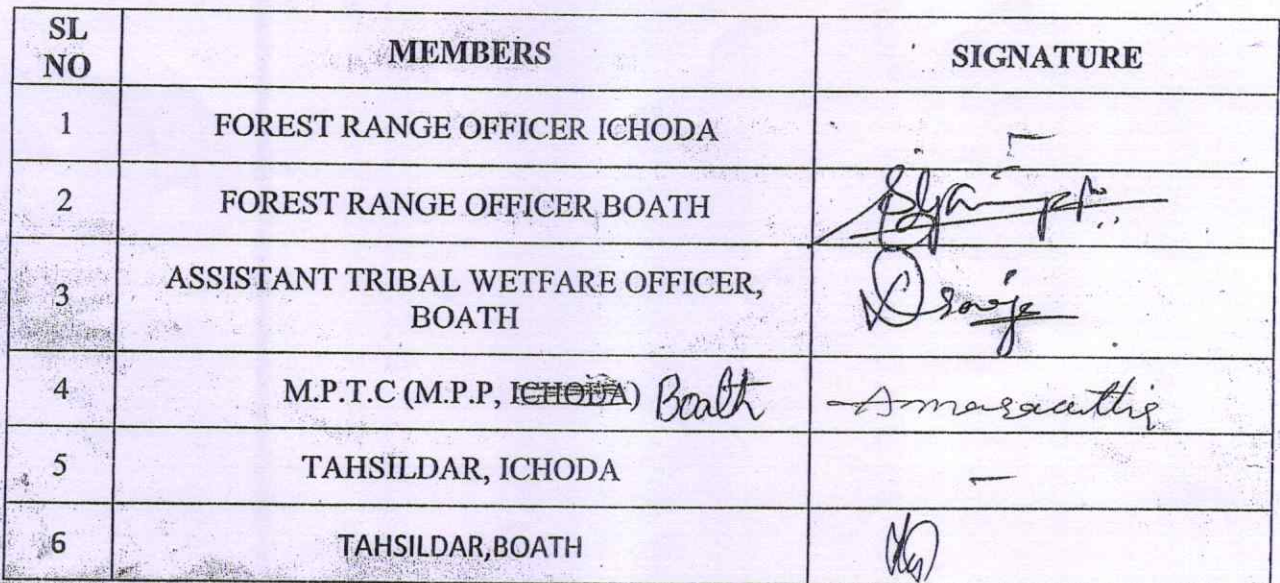 SL NO MEMBERS SIGNATURE
1 FOREST RANGE OFFICER ICHODA –
2 FOREST RANGE OFFICER BOATH
3 ASSISTANT TRIBAL WETFARE OFFICER,
BOATH
4 M.P.T.C (M.P.P, ICHODA) Boath
5 TAHSILDAR, ICHODA –
6 TAHSILDAR,BOATH